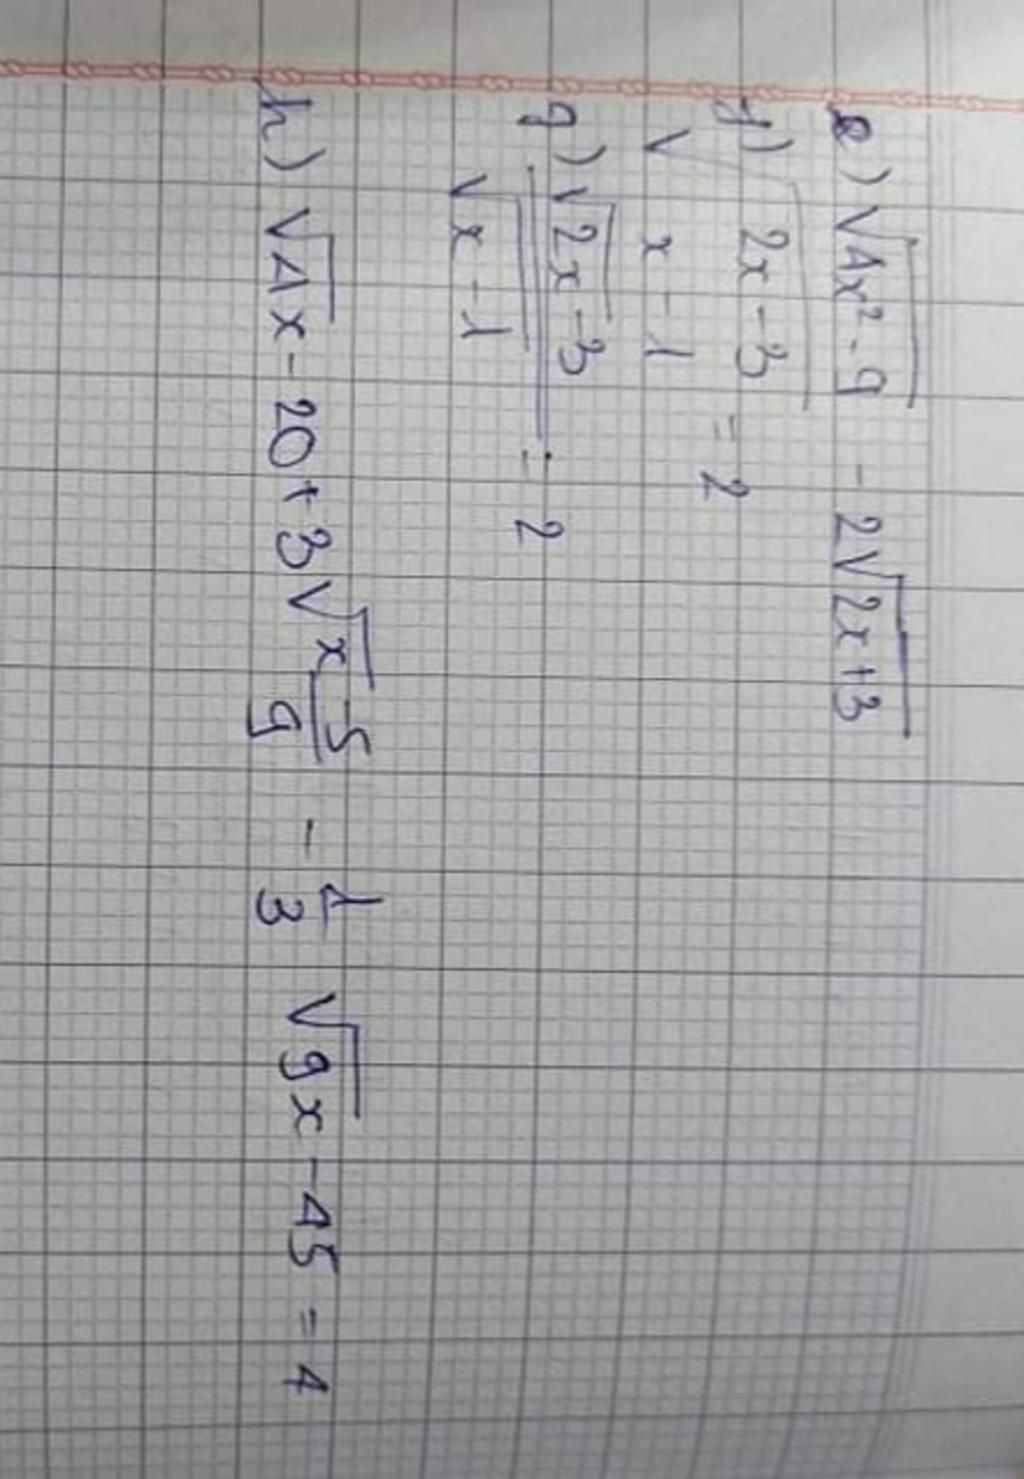 e) √4x² - 9 - 2√2x+3
f) √2x-3/x-1 = 2
g) √2x-3/√x-1 = 2
h) √4x-20 + 3√x-5/9 - 1/3 √9x-45 = 4